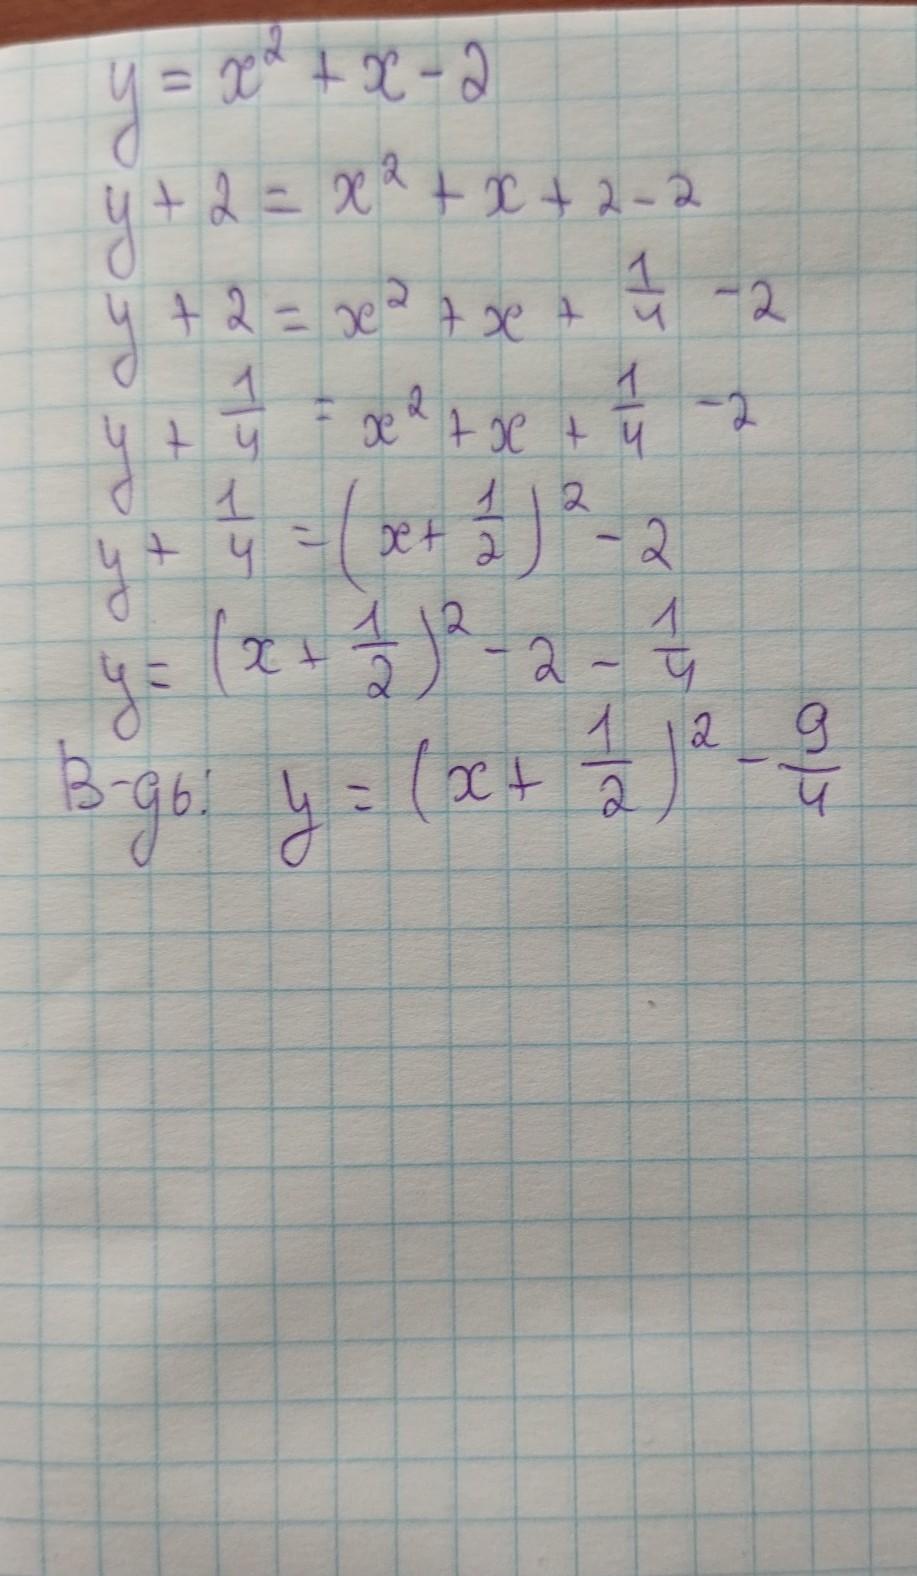 y = x² + x - 2
y + 2 = x² + x + 2 - 2
y + 2 = x² + x + 1/4 - 2
y + 1/4 = x² + x + 1/4 - 2
y + 1/4 = (x + 1/2)² - 2
y = (x + 1/2)² - 2 - 1/4
В-дь: y = (x + 1/2)² - 9/4